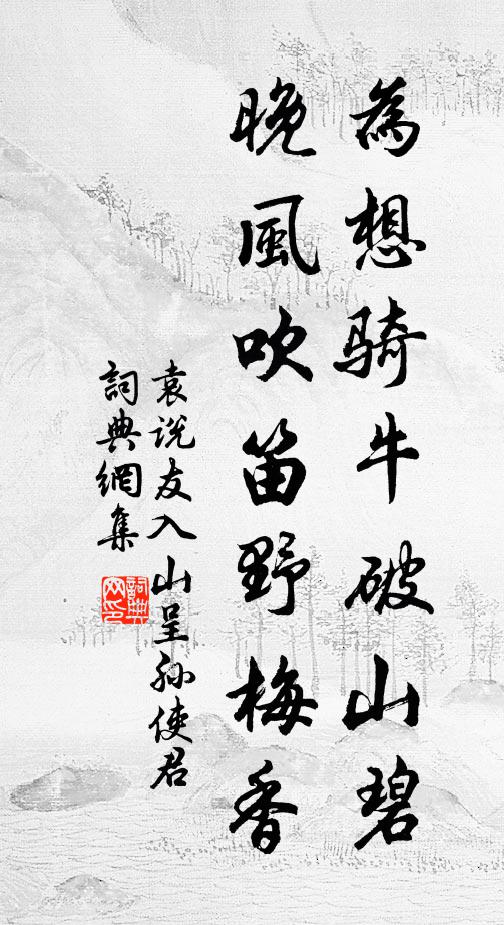 為想骑牛破山碧
晚風吹笛野梅香
袁说友入山呈孙使君
詞典網集